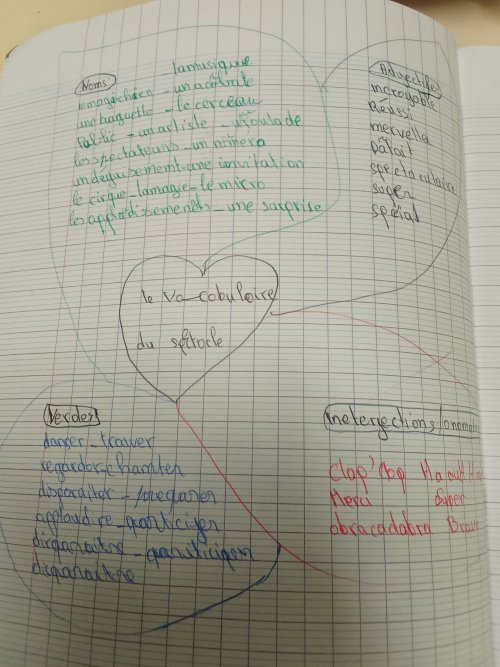 Noms
la musique
le magichien - un acrobate
une baguette - le cerceau
Public - un artiste - roulade
les spectateurs - un numéro
un déguisement - une invitation
le cirque - la magie - le micro
les applodissements - une surprise
Adjectifs
incroyable
Réussi
pâfait
spectaculaire
super
spécial
le vo-cabulaire
du spétacle
Verbes
danser - trouver
regarder - chanter
disparaître - préparer
applaudire - participer
disparaitre - participer
disparaitre
Ineterjections
Clap
Merci Super
abracadabra Bravo